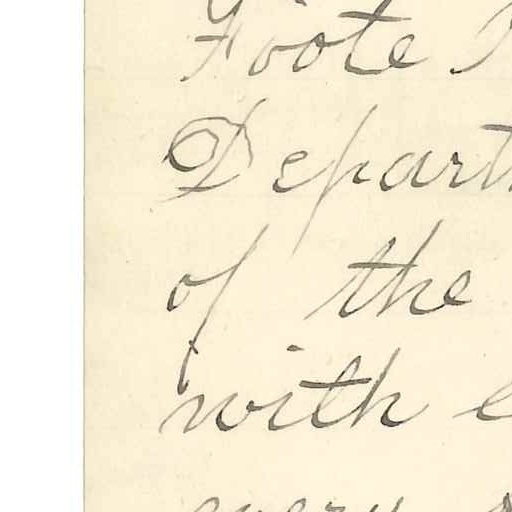 Foote
Depart
of the
with e
every